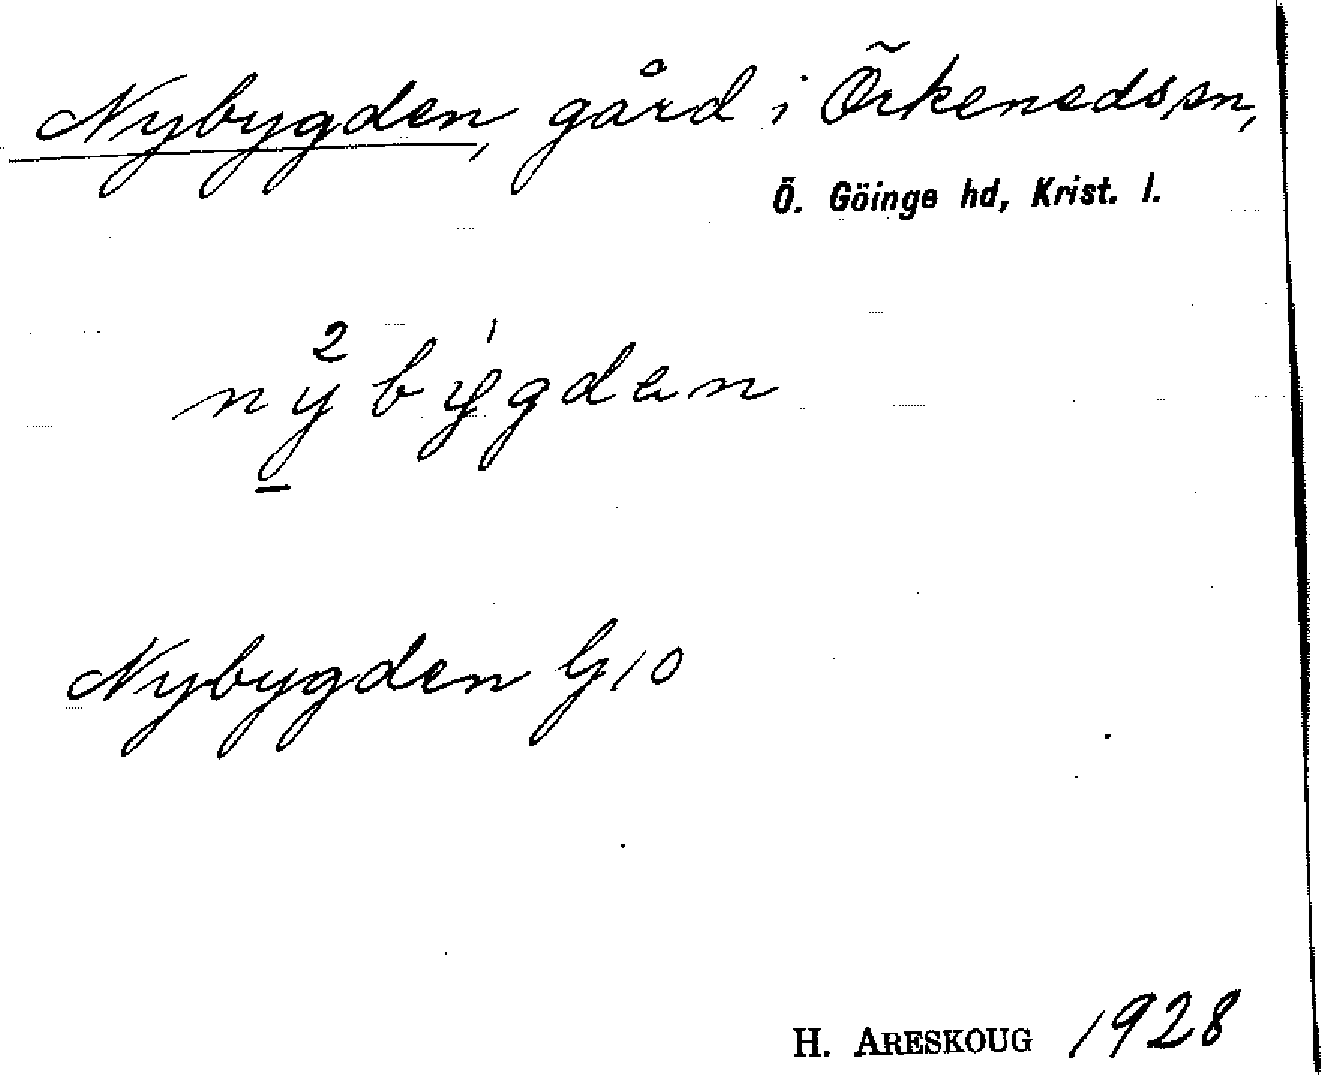 Nybygden, gård i Örkeneds sn,
Ö. Göinge hd, Krist. l.
nybygdan
Nybygden G10
H. ARESKOUG 1928